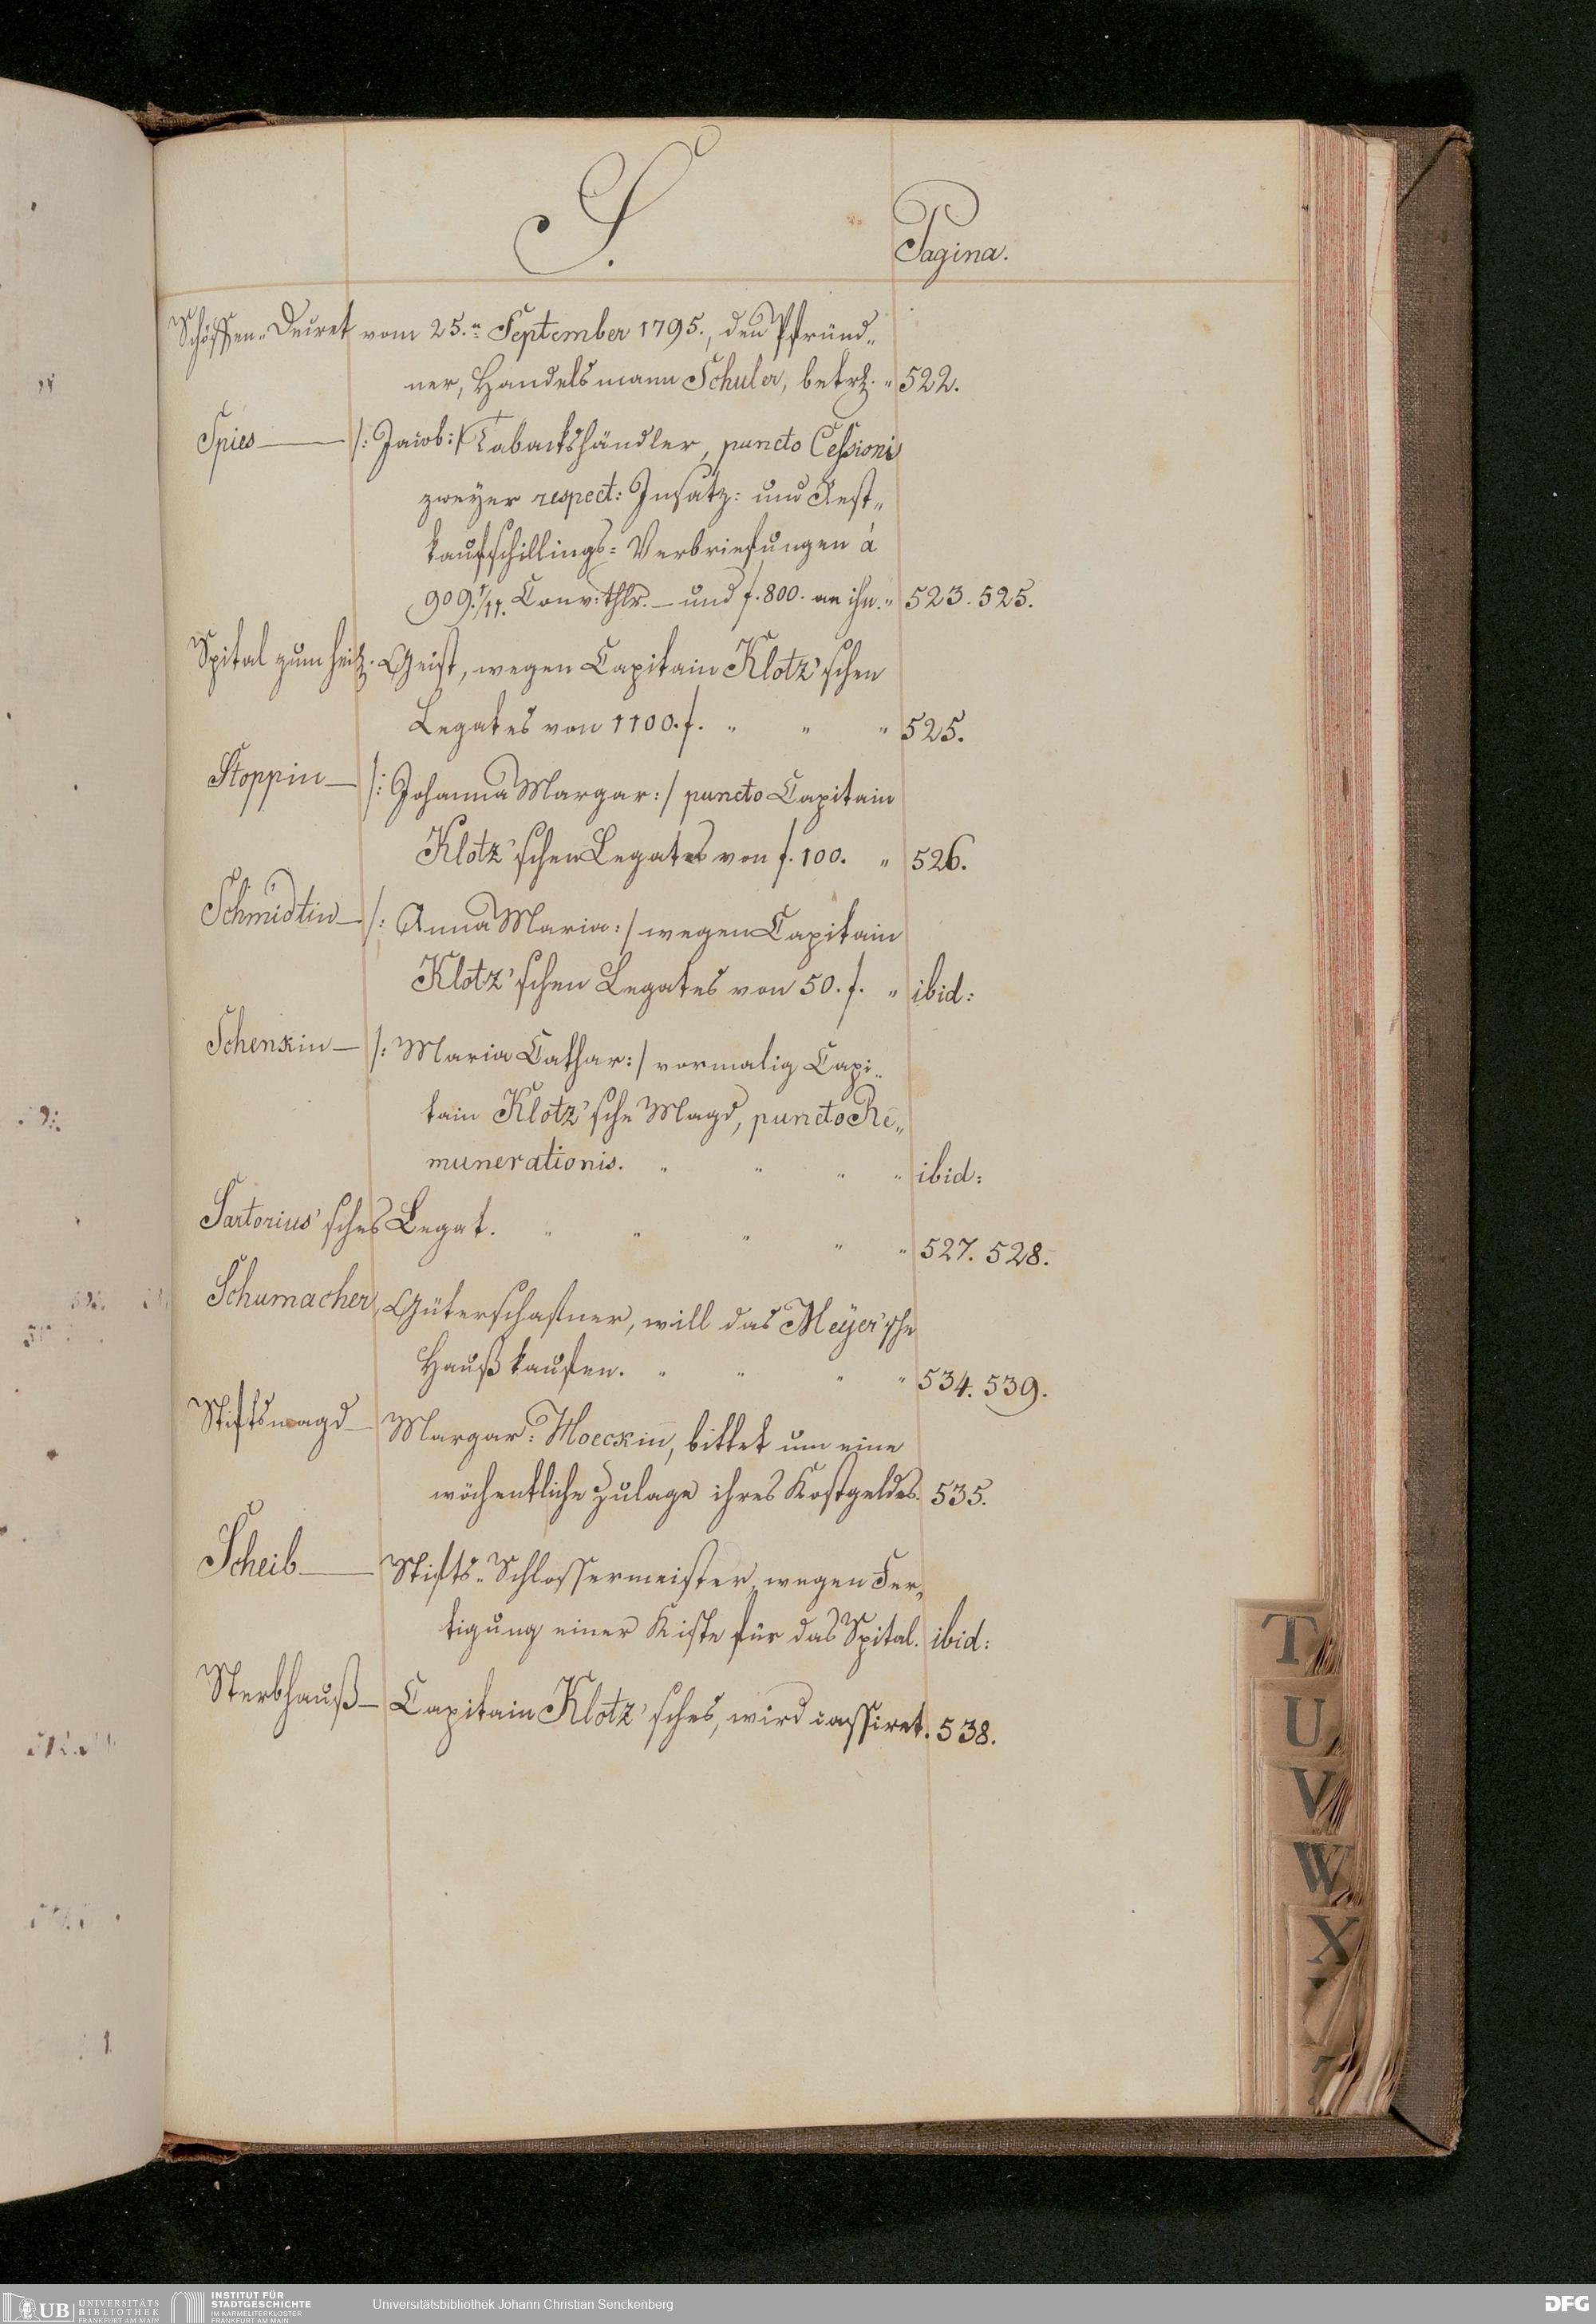 S.
Pagina.
Schöffen-Decret vom 25.n September 1795., den Pfründ„
ner, Handelsmann Schuler, betrf. " 522.
Spies — /: Jacob :/ Tabackshändler, puncto Cessioni
zweyer respect: Insatz: und Rest„
kaufschillings-Verbriefungen á
909. 1/11. Conv: thlr. — und f. 800. an ihn. " 523. 525.
Spital zum heil. Geist, wegen Capitain Klotz'schen
Legates von 1100. f. " " " 525.
Stoppin — /: Johanna Margar: / puncto Capitain
Klotz'schen Legates von f. 100. " 526.
Schmidtin — /: Anna Maria: / wegen Capitain
Klotz'schen Legates von 50. f. " ibid:
Schenkin — /: Maria Cathar: / vormalig Capi„
tain Klotz'sche Magd, puncto Re„
munerationis. " " " " ibid:
Sartorius'sches Legat. " " " " " 527. 528.
Schumacher, Güterschaffner, will das Meyer'sche
Hauß kaufen. " " " " 534. 539.
Stiftsmagd — Margar: Moeckin, bittet um eine
wöchentliche Zulage ihres Kostgeldes. 535.
Scheib — Stifts-Schlossermeister, wegen Fer„
tigung einer Kiste für das Spital. ibid:
Sterbhauß — Capitain Klotz'sches, wird cassiret. 538.
T
U
V
W
X
UB UNIVERSITÄTS
BIBLIOTHEK
FRANKFURT AM MAIN
INSTITUT FÜR
STADTGESCHICHTE
IM KARMELITERKLOSTER
FRANKFURT AM MAIN
Universitätsbibliothek Johann Christian Senckenberg
DFG